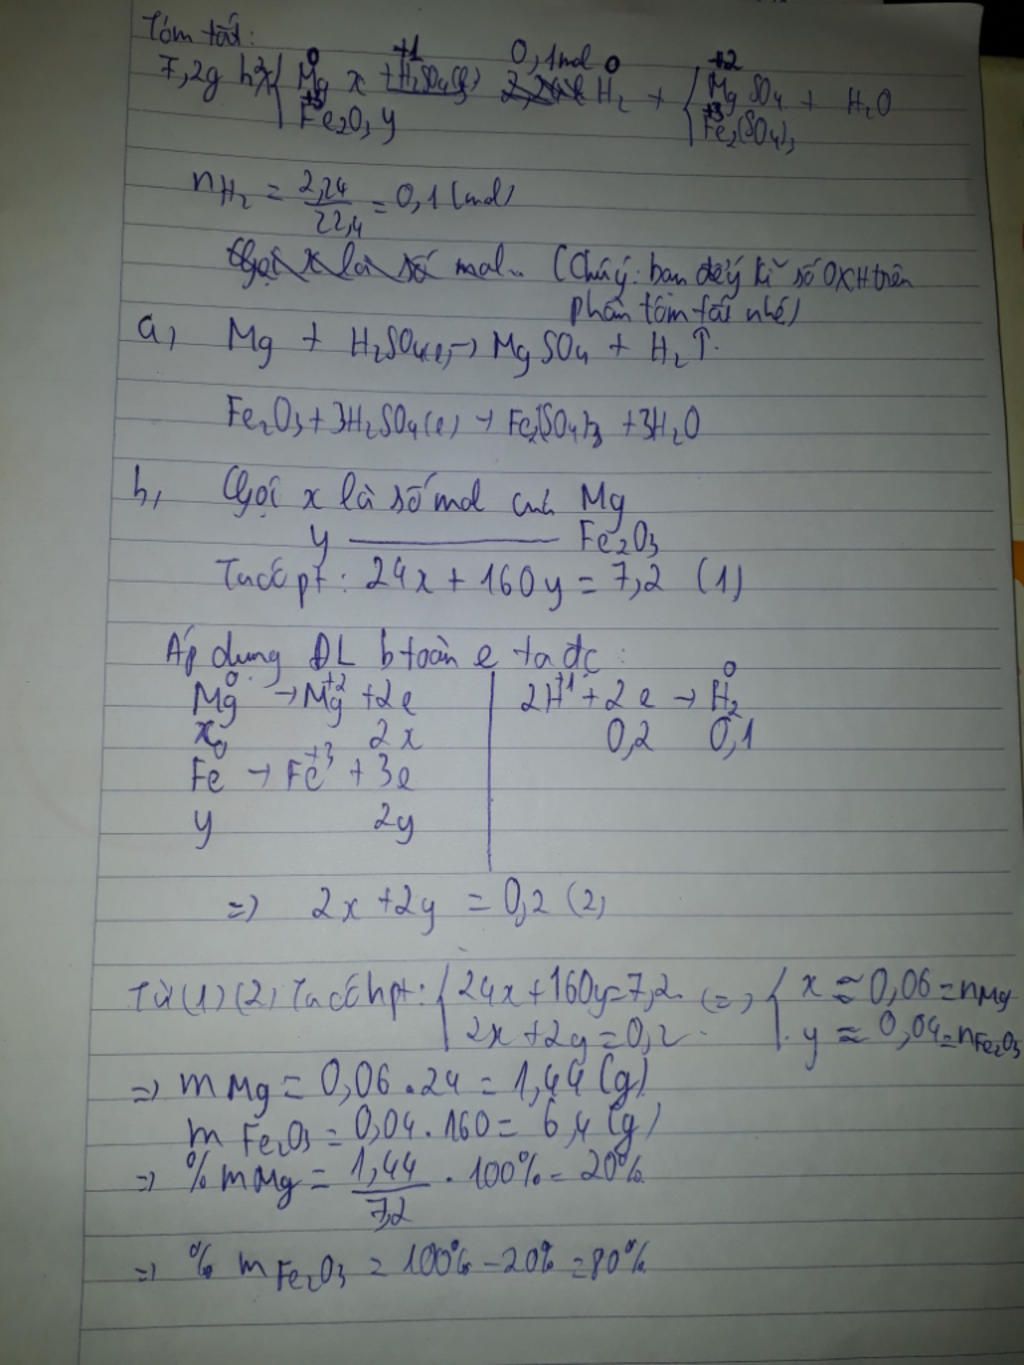 Tóm tắt:
0,1mol
0 +1 0 +2
7,2g h²x { Mg x + H₂SO₄(l) 2,24l H₂ + { MgSO₄ + H₂O
+3 +3
Fe₂O₃ y Fe₂(SO₄)₃
nH₂ = 2,24/22,4 = 0,1 (mol)
Gọi x là số mol.. (Chú ý: bạn để ý kĩ số OXH trên
phần tóm tắt nhé)
a, Mg + H₂SO₄(l) → MgSO₄ + H₂↑.
Fe₂O₃ + 3H₂SO₄(l) → Fe₂(SO₄)₃ + 3H₂O
b, Gọi x là số mol của Mg
y ——— Fe₂O₃
Ta có pt: 24x + 160y = 7,2 (1)
Áp dụng ĐL btoàn e ta đc:
0 +2 +1 0
Mg → Mg + 2e | 2H + 2e → H₂
x 2x | 0,2 0,1
0 +3
Fe → Fe + 3e
y 2y
=> 2x + 2y = 0,2 (2)
Từ (1) (2) Ta có hpt: { 24x + 160y = 7,2 (=) { x ≈ 0,06 = nMg
2x + 2y = 0,2 y ≈ 0,04 = nFe₂O₃
=> mMg = 0,06 . 24 = 1,44 (g)
mFe₂O₃ = 0,04 . 160 = 6,4 (g)
=> %mMg = 1,44/7,2 . 100% = 20%
=> % mFe₂O₃ = 100% - 20% = 80%